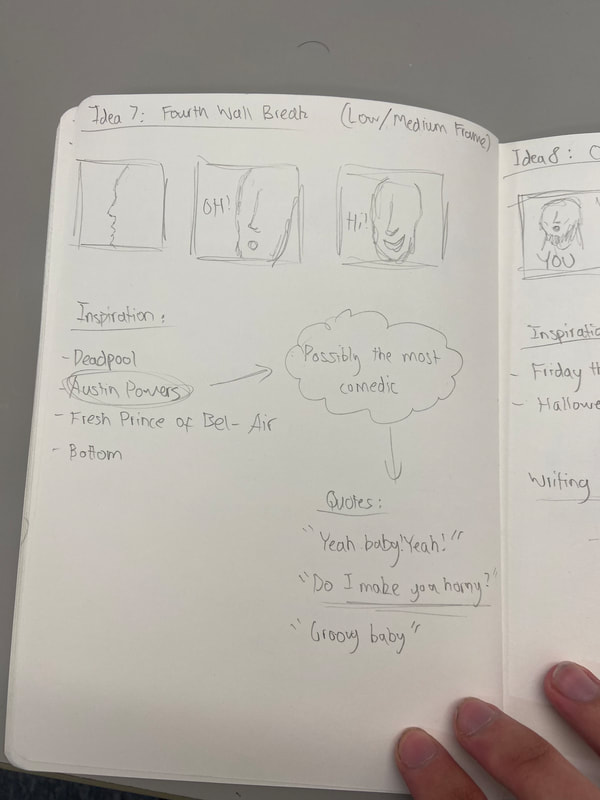 Idea 7: Fourth Wall Break (Low/Medium Frame)
OH!
Hi!
Inspiration:
- Deadpool
- Austin Powers
- Fresh Prince of Bel-Air
- Bottom
Possibly the most
comedic
Quotes:
"Yeah baby! Yeah!"
"Do I make you horny?"
"Groovy baby"
Idea 8:
YOU
Inspiratio
- Friday th
- Hallowe
Writing